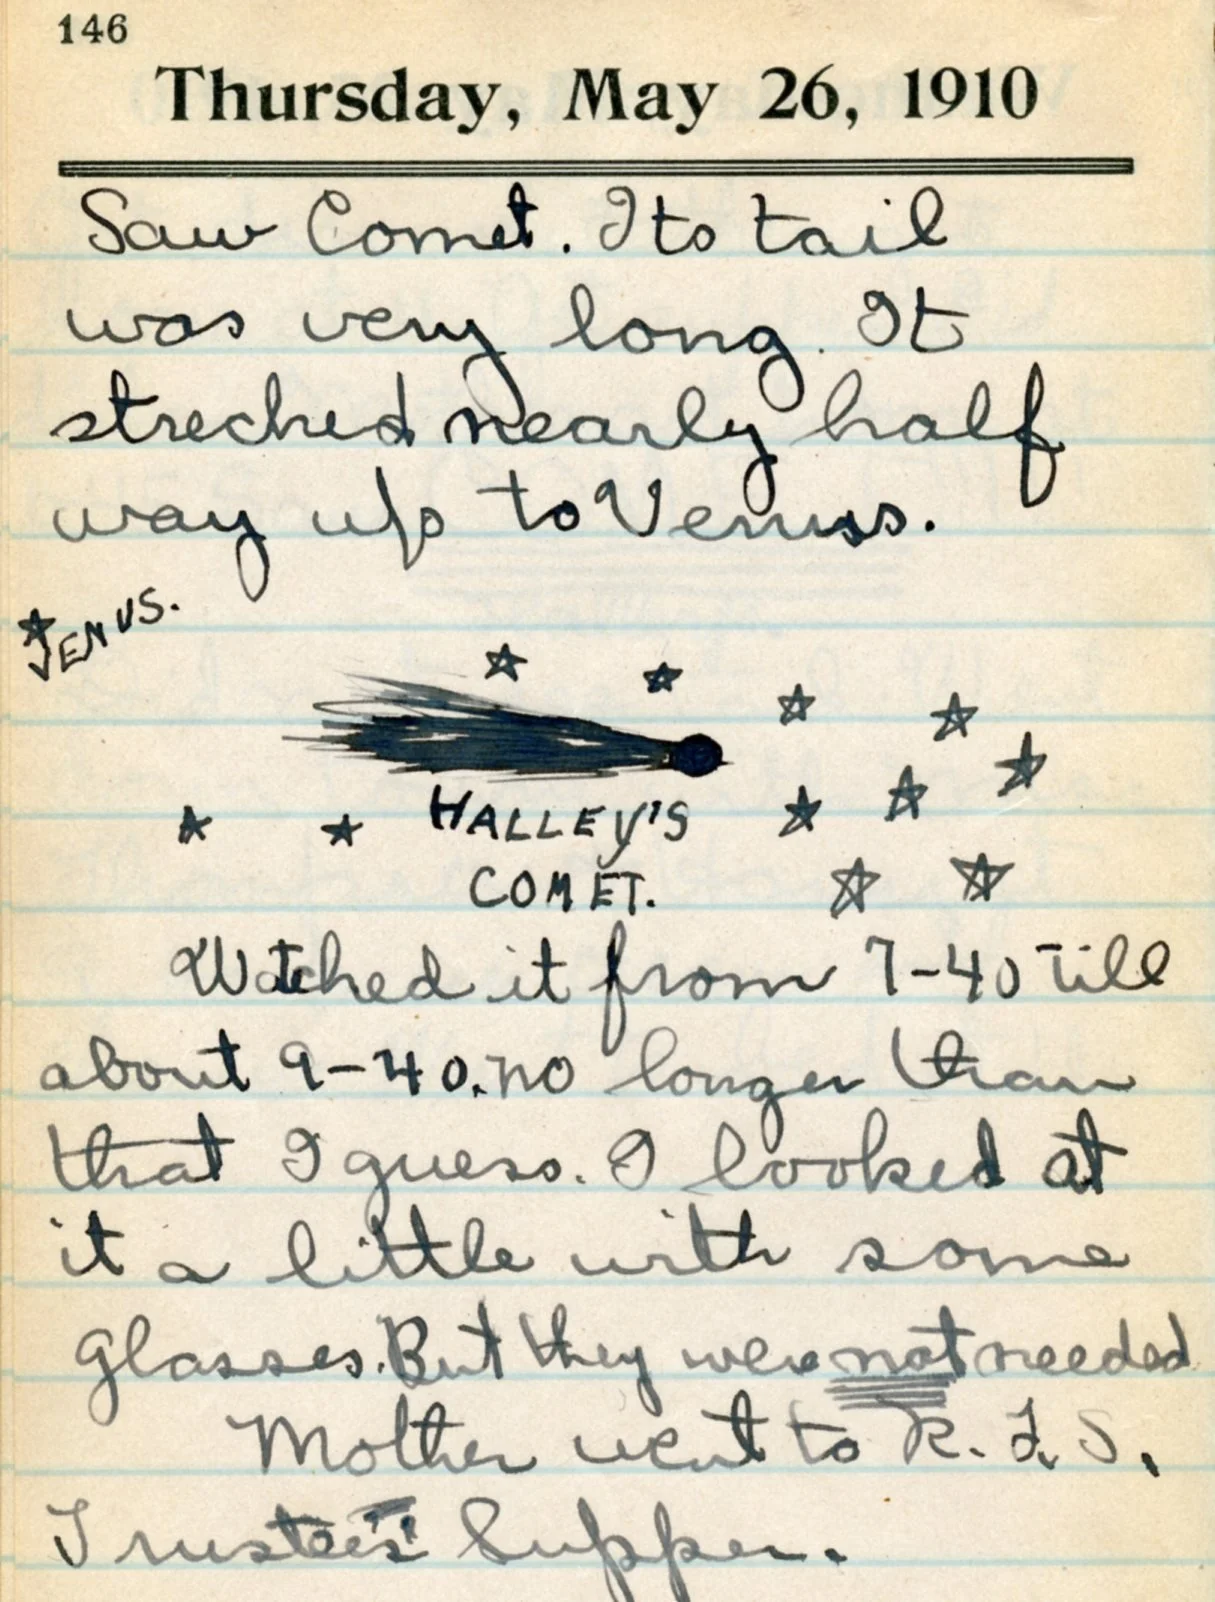 146
Thursday, May 26, 1910
Saw Comet. Its tail
was very long. It
streched nearly half
way up to Venus.
VENUS.
HALLEY'S
COMET.
Watched it from 7-40 till
about 9-40. no longer than
that I guess. I looked at
it a little with some
glasses. But they were not needed
Mother went to R. I. S.
Trustees' Supper.